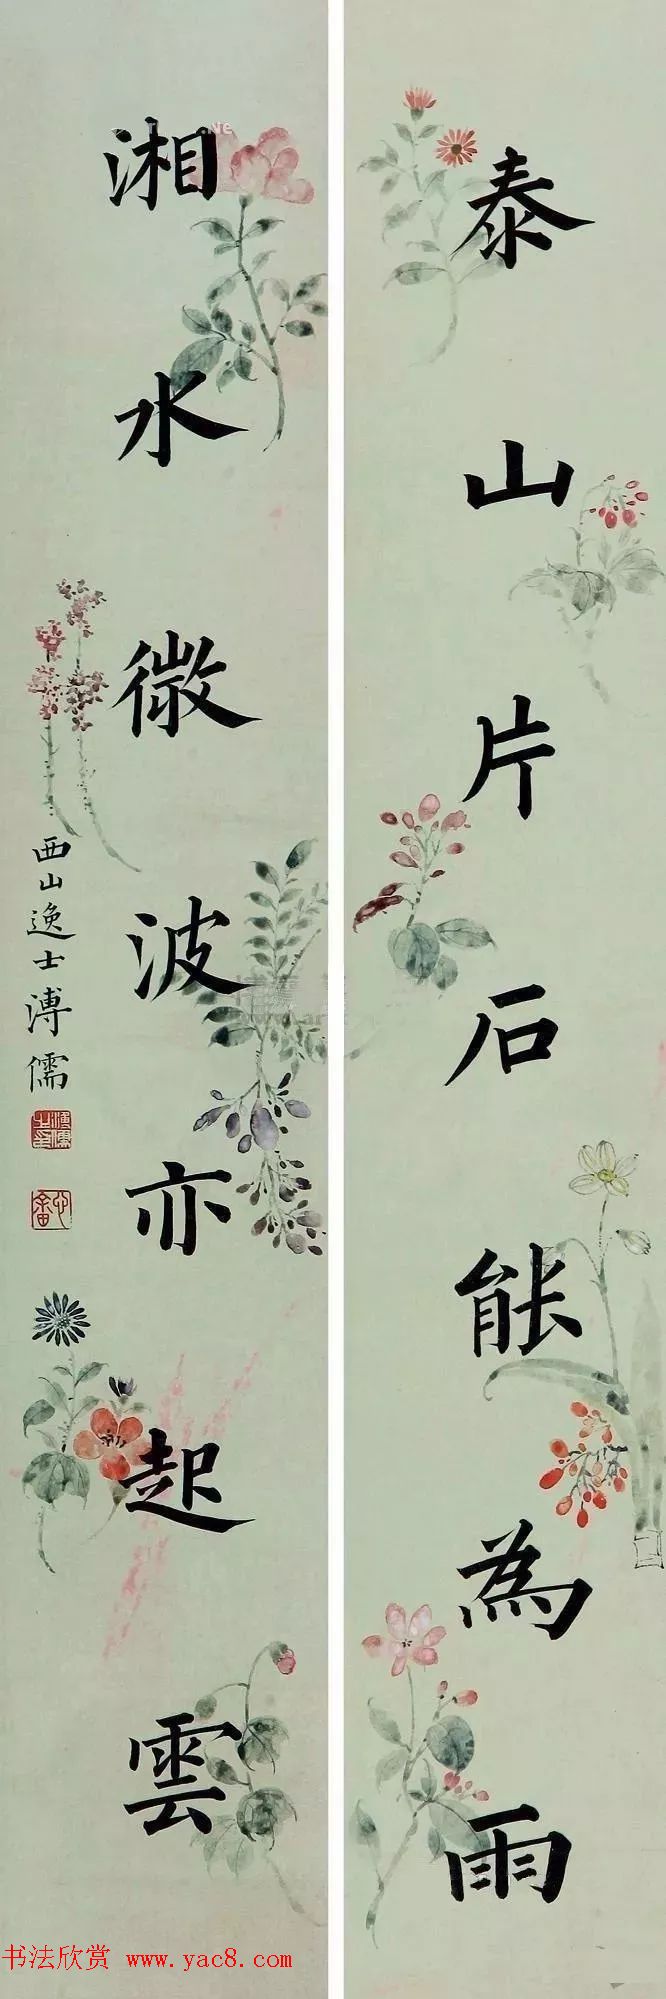 泰山片石能為雨
湘水微波亦起雲
西山逸士溥儒
书法欣赏 www.yac8.com